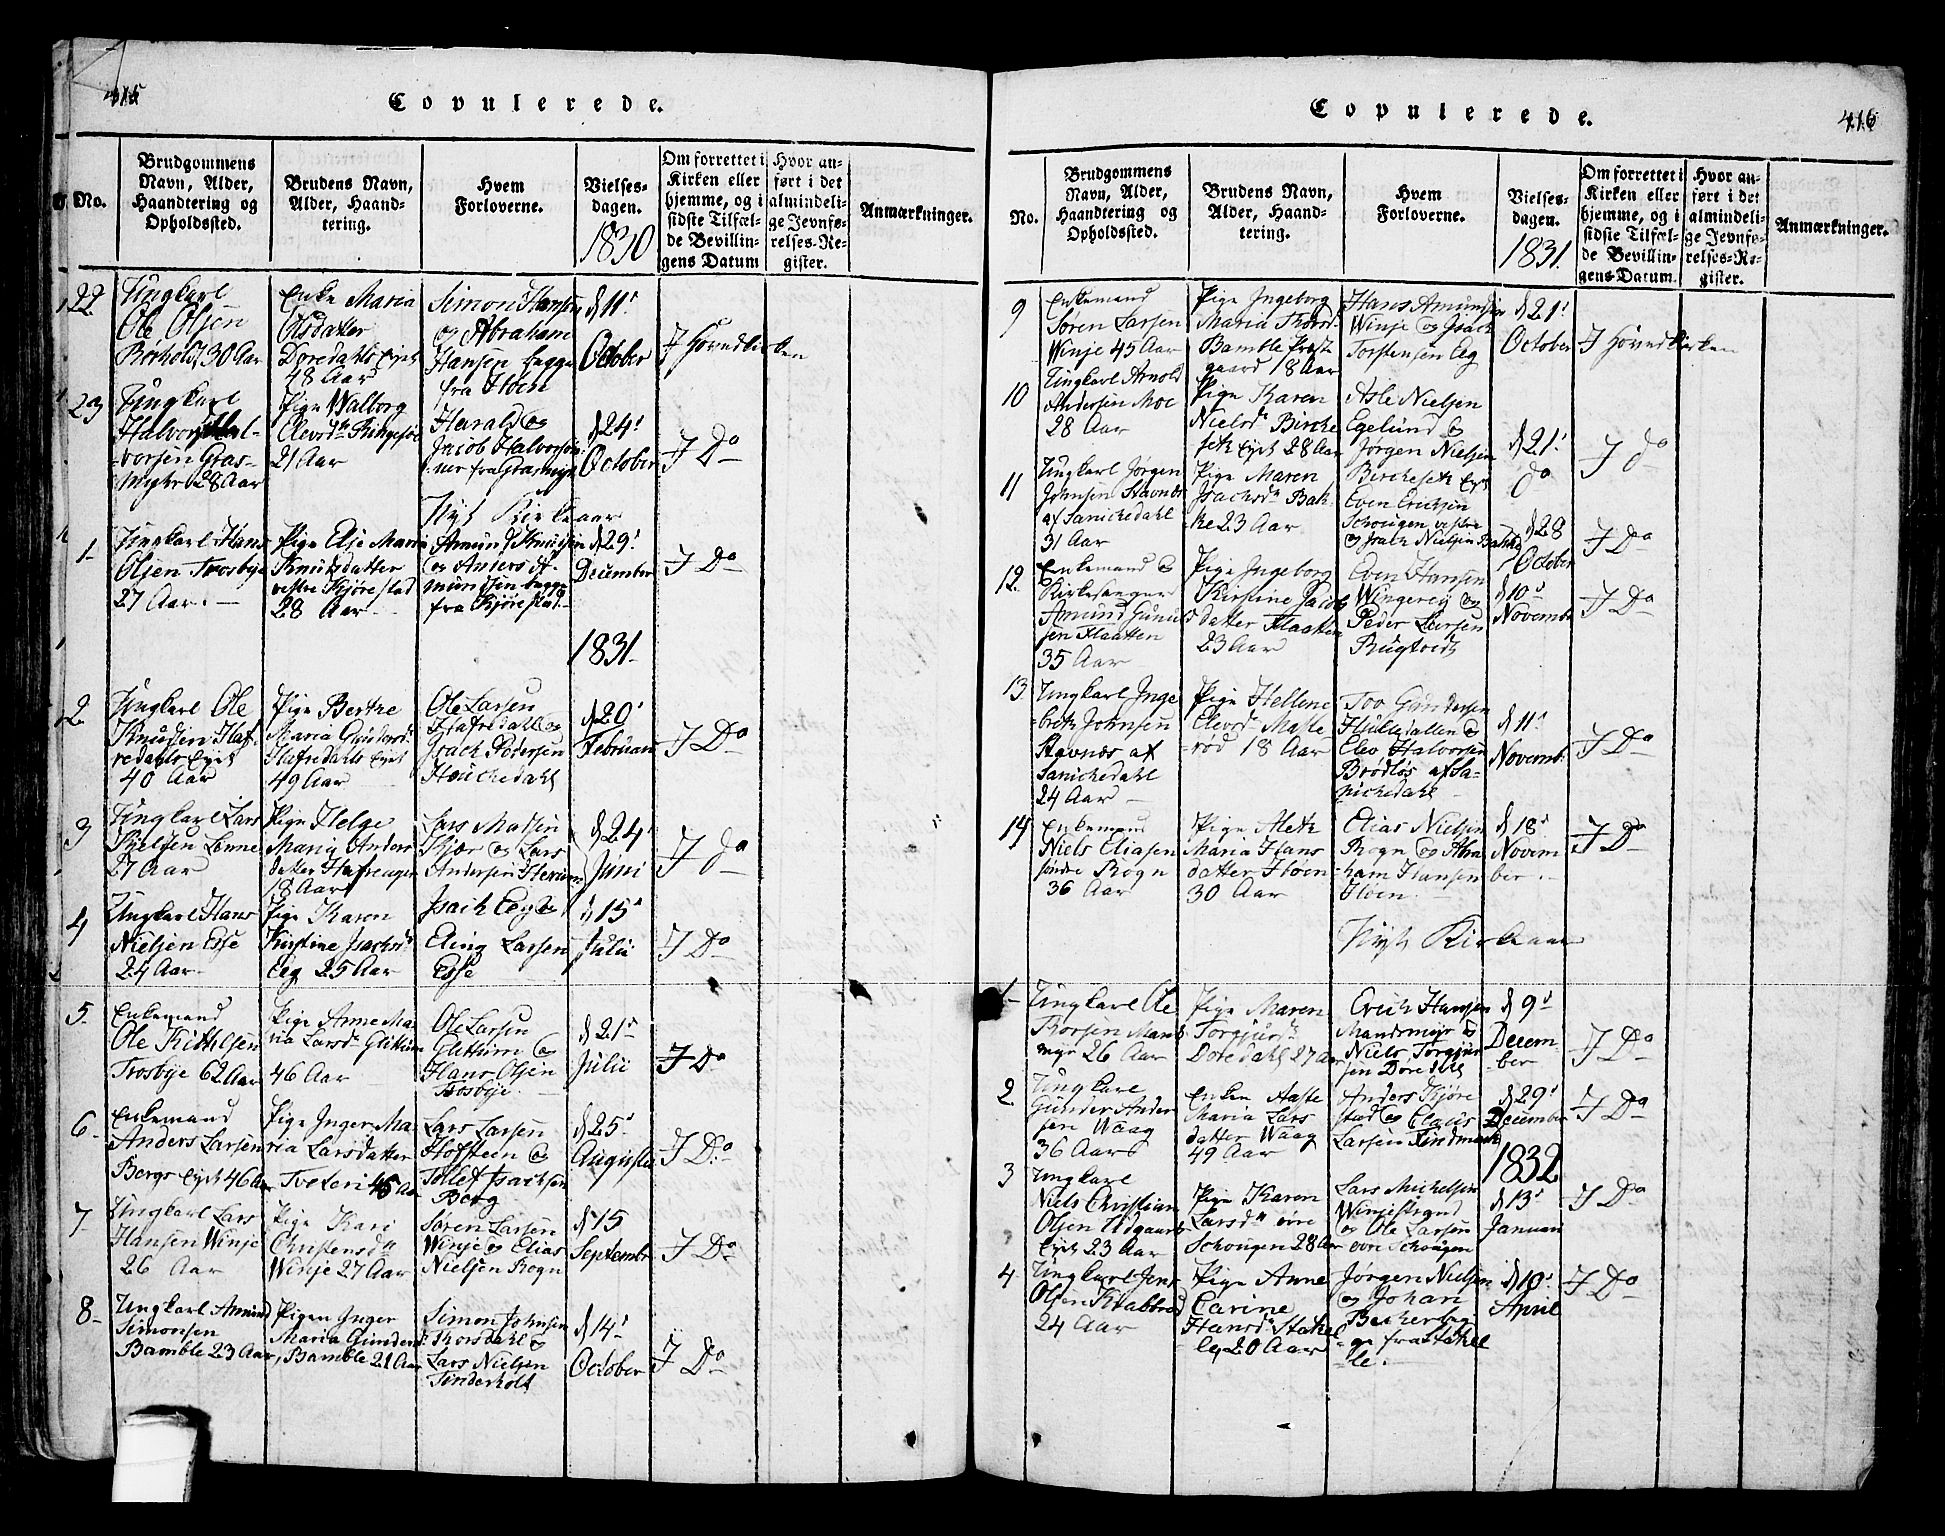 415
Copulerede.
No.
Brudgommens Navn, Alder, Haandtering og Opholdssted.
Brudens Navn, Alder, Haandtering.
Hvem Forloverne.
Vielsesdagen.
1830
Om forrettet i Kirken eller hjemme, og i sidste Tilfælde Bevillingens Datum
Hvor anført i det almindelige Jevnførelses-Register.
Anmærkninger.
22.
Ungkarl
Ole Olsen
Rørholt, 30 Aar
Enke Maria
Olsdatter
Doredahls Eyet
48 Aar
Simon Hansen
og Abraham
Hansen begge
fra Hoen
d 11te
October
I Hovedkirken
23
Ungkarl
Halvor Halvorsen
Grasmyhr 28 Aar
Pige Walborg
Elevsdr
21 Aar
Harald og
Jacob Halvorsen
d 24'
October
I Do
Nyt Kirkeaar
1.
Ungkarl Hans
Olsen Trosbye
27 Aar.
Pige Else Maria
Knudsdatter
vestre Kjørestad
28 Aar
Amund Knudsen
og Anders Amundsen begge
fra Kjørestad.
d 29'
December
I Do
1831.
2
Ungkarl Ole
Knudsen Hafredahls Eyet
40 Aar
Pige Berthe
Maria Gundersd
Hafredahls Eyet
49 Aar
Ole Larsen
Hafredahl og
Isach Pedersen
d 20'
Februari
I Do
3
Ungkarl Lars
27 Aar
Pige Helge
Maria Andersdatter
18 Aar
Lars Madsen
Kjær og Lars
Andersen
d 24'
Juni
I do
4
Ungkarl Hans
Nielsen Esse
24 Aar.
Pige Karen
Kirstine Isachsdr
Eeg 25 Aar
Isach Eeg
Larsen
Esse
d 15'
Julii
I Do
5.
Enkemand
Trosbye 62 Aar
Pige Anne Maria Larsdr Glittum
46 Aar
Ole Larsen
Glittum og
Hans Olsen
Trosbye.
d 21'
Julii
I Do
6
Enkemand
Anders Larsen
Bergs Eyet 46 Aar
Pige Inger Maria Larsdatter
Tveten 45 Aar
Lars Larsen
Hofsteen og
Tollef Isachsen
Berg
d 25'
Augusti
I Do
7
Ungkarl Lars
Hansen Winje
26 Aar
Pige Kari
Christensdr
Winje 27 Aar
Søren Larsen
Winje og Elias
Nielsen Rogn
d 15
Septembr
I Do
8
Ungkarl Amund
Simonsen
Bamble 23 Aar
Pigen Inger
Maria Gundersd
Bamble 21 Aar
Simon Johnsen
Thorsdahl og
Lars Nielsen
Tinderholt
d 14'
October
I Do
416
Copulerede.
No.
Brudgommens Navn, Alder, Haandtering og Opholdssted.
Brudens Navn, Alder, Haandtering.
Hvem Forloverne.
Vielsesdagen.
1831.
Om forrettet i Kirken eller hjemme, og i sidste Tilfælde Bevillingens Datum.
Hvor anført i det almindelige Jevnførelses-Register.
Anmærkninger.
9
Enkemand
Søren Larsen
Winje 45 Aar
Pige Ingeborg
Maria Thorsd
Bamble Præstegaard 18 Aar
Hans Amundsen
Winje og Isach
Torstensen Eeg
d 21'
October
I Hovedkirken
10
Ungkarl Arnold
Andersen Moe
28 Aar
Pige Karen
Nielsdr Birkeseth Eyet 28 Aar
Asle Nielsen
Egelund og
Jørgen Nielsen
Bircheseth Eyet
d 21'
do
I do
11
Ungkarl Jørgen
Johnsen Stavnæs
af Sanichedahl
31 Aar
Pige Maren
Isachsdr Bakke 23 Aar
Even Erichsen
Schougen vestre
og Isach Nielsen Bakke
d 28
October
I Do
12.
Enkemand og
Kirkesanger
Amund
Flaatten
35 Aar
Pige Ingeborg
Kirstine Jacobsdatter Flaatten
23 Aar
Even Hansen
og
Peder Larsen
Rugtvedt
d 10'
Novembr
I Do
13
Ungkarl Ingebreth Johnsen
Stavnæs af
Sanichedahl
24 Aar
Pige Hellene
Elevsdr
18 Aar
Tov Gundersen
og
Elev Halvorsen
Brødløs af Sanichedahl
d 11'
Novemb:
I Do
14
Enkemand
Niels Eliasen
søndre Rogn
36 Aar
Pige Aleth
Maria Hansdatter Hoen
30 Aar
Elias Nielsen
Rogn og Abraham Hansen
Hoen.
d 18'
November.
I Do
Nyt Kirkeaar
1
Ungkarl Ole
26 Aar
Pige Maren
Torgjusdr
Doredahl 27 Aar
Erich Hansen
og
Niels Torgjusen Doredahl
d 9'
December
I Do
2
Ungkarl
Gunder Andersen Waag
36 Aar
Enken Aaste
Maria Larsdatter Waag
49 Aar
Anders Kjørestad og Claus
Larsen Findmark
d 29'
December
I Do
1832
3
Ungkarl
Niels Christian
Olsen
Eyet 23 Aar
Pige Karen
Larsdr øvre
Schougen 28 Aar
Lars Michelsen
Winjestrand
og Ole Larsen
øvre Schougen
d 13'
Januari
I Do
4
Ungkarl Jens
Olsen Krabberød
24 Aar
Pige Anne
Carine
Hansdr Stathelle, 20 Aar
Jørgen Nielsen
og Johan
fra Stathelle.
d 10'
April
I Do